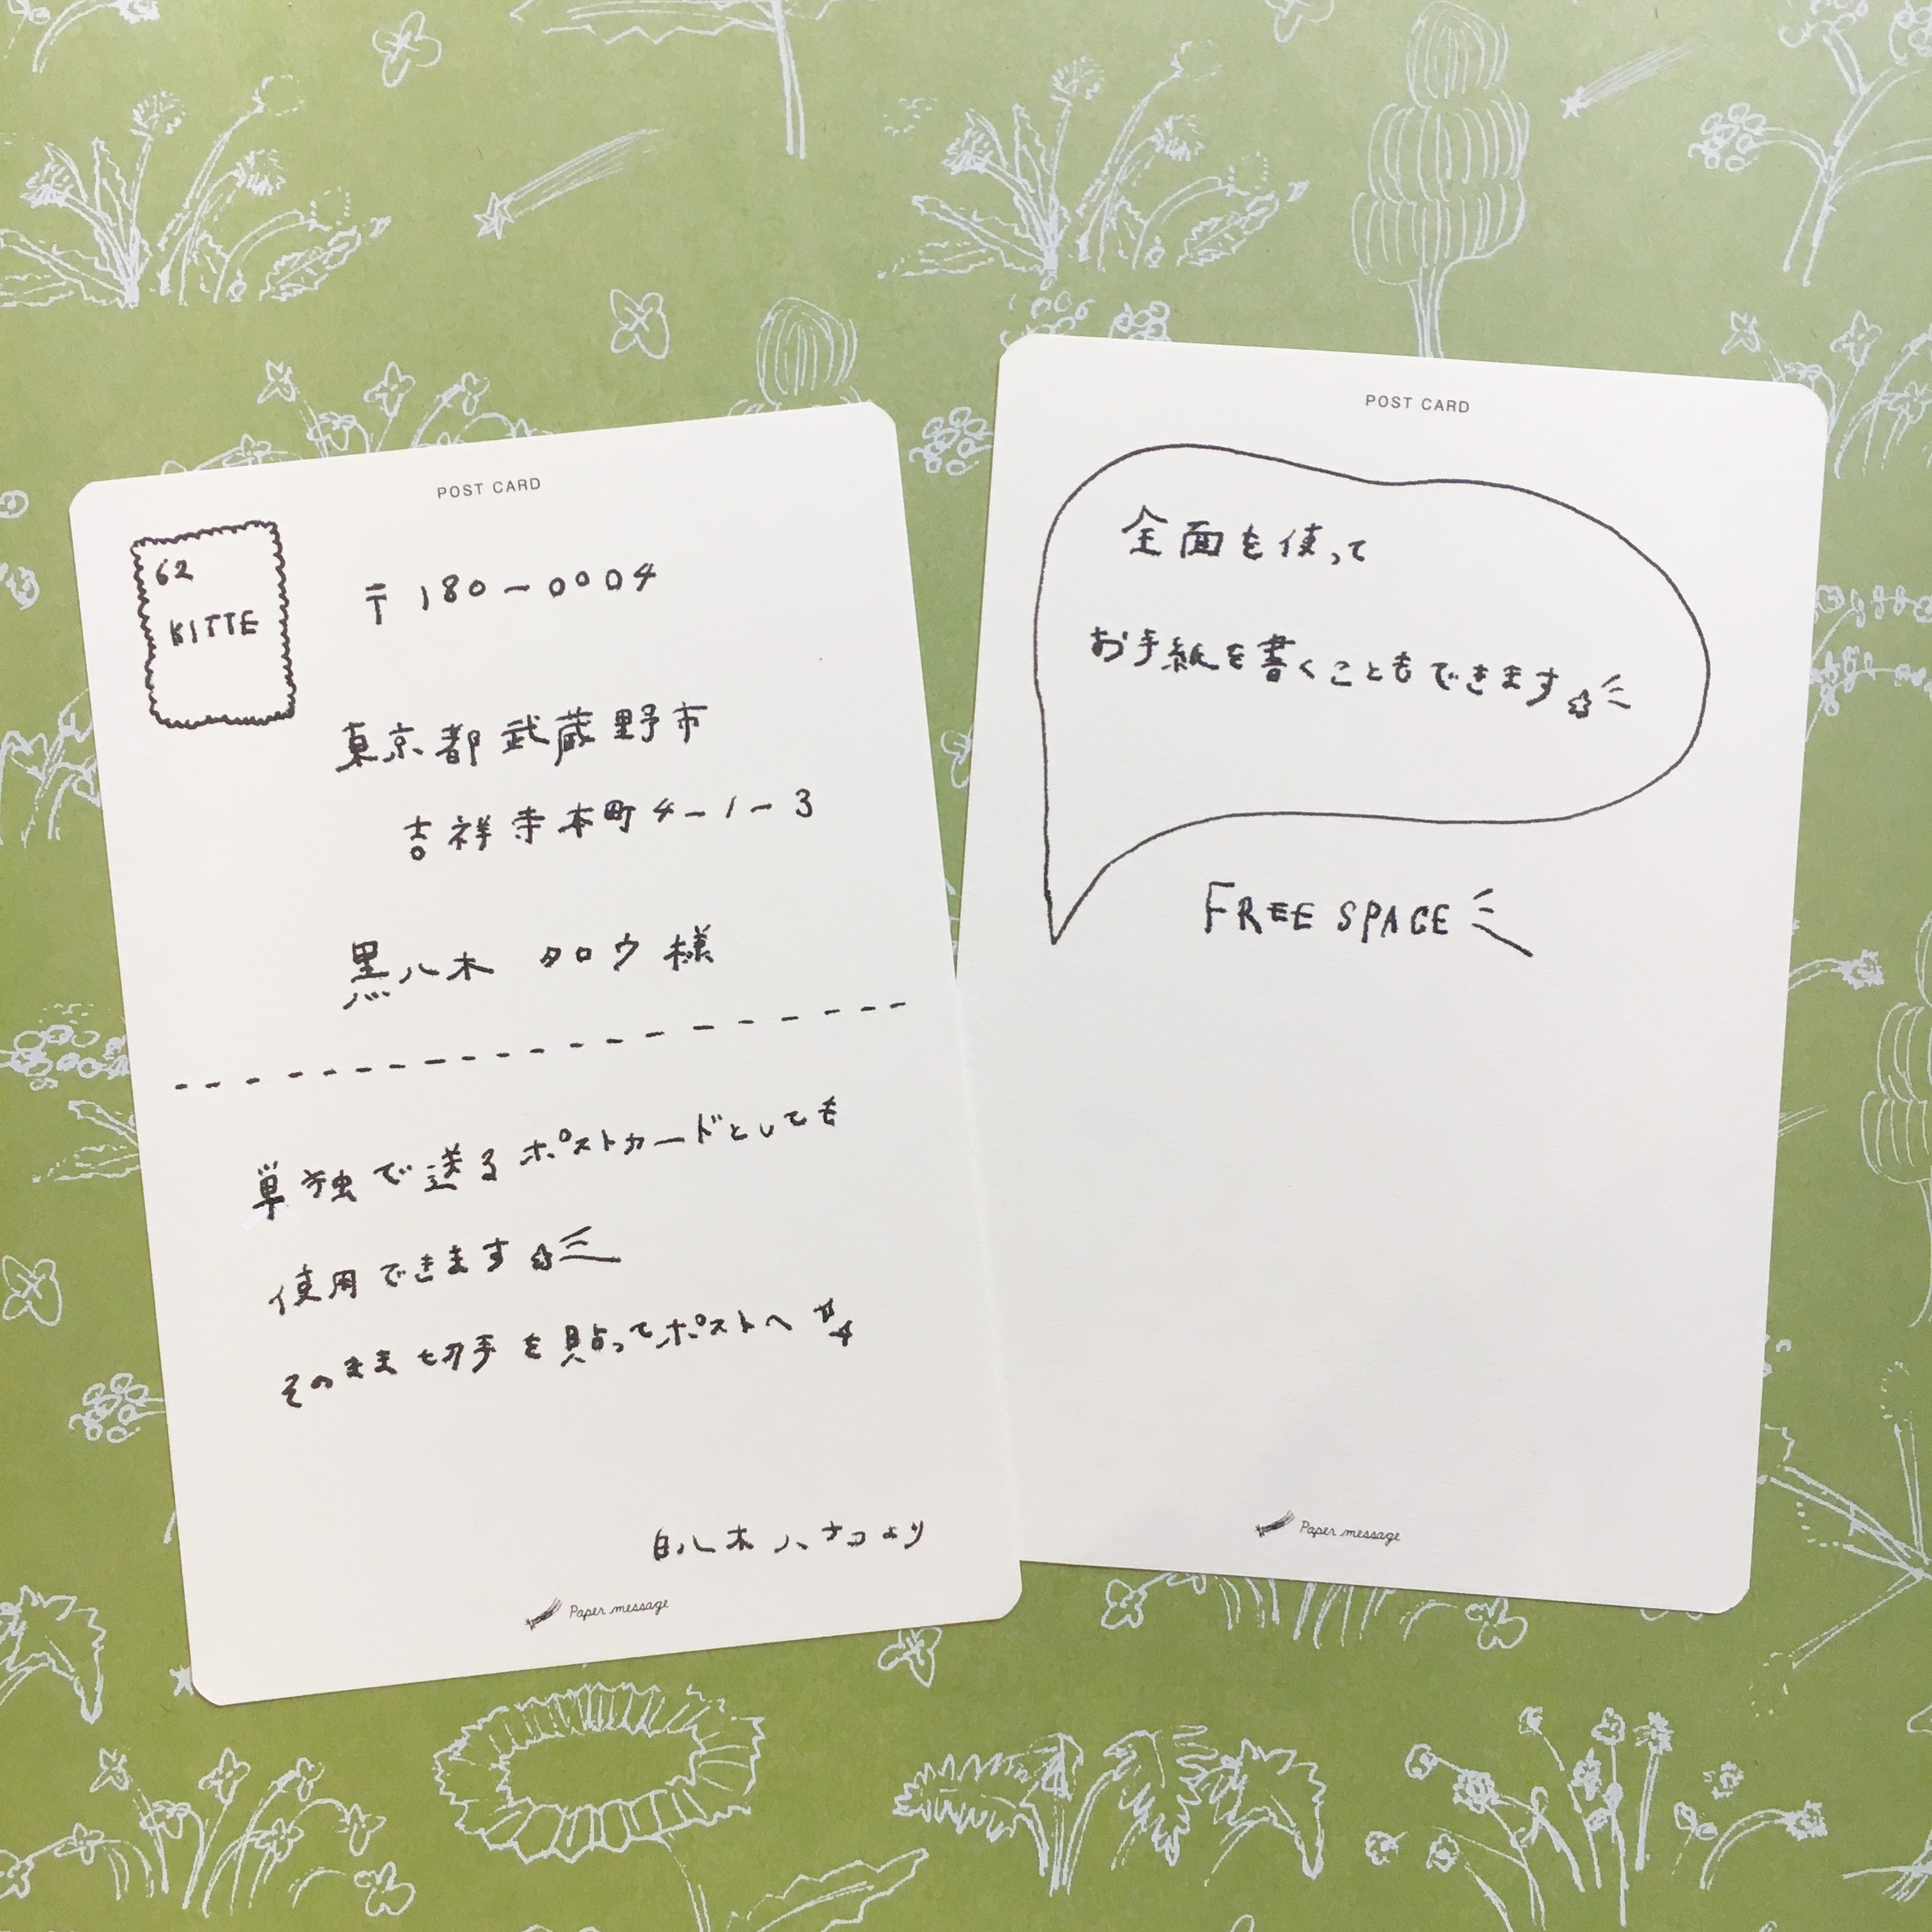 POST CARD
62
KITTE
〒180-0004
東京都武蔵野市
吉祥寺本町4-1-3
黒八木 タロウ 様
単独で送るポストカードとしても
使用できます
そのまま切手を貼ってポストへ
白八木 ハナコより
Paper message
POST CARD
全面を使って
お手紙を書くこともできます
FREE SPACE
Paper message